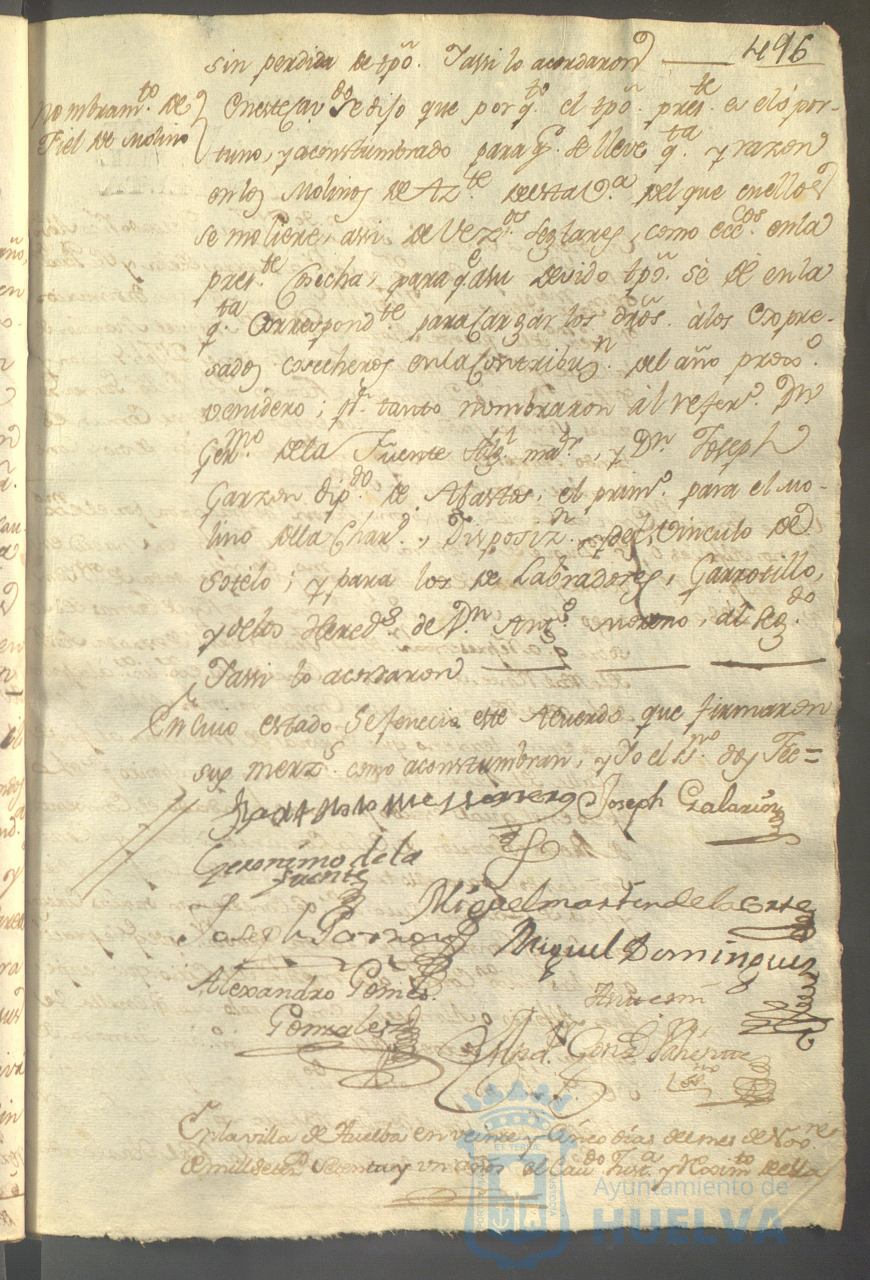 496
sin perdida de tpõ. Y assi lo acordaron
Nombram.to de
Fiel de Molino
En este Cav.do se dijo que por q.to el tpõ. pres.te es el ópor-
tuno, y acostumbrado para q.e se lleve q.ta y razon
en los Molinos de Az.te de esta V.a del que en ellos
se moliere, assi de Vez.os seglares, como ecc.cos en la
pres.te Cosecha, para q.e a su devido tpõ. se dè en la
q.ta Correspond.te para Cargar los drõs. à los Expre-
sados cosecheros en la Contribuz.n del año prox.o
venidero; p.r tanto nombraron àl refer.o Dn
Ger.mo de la Fuente Alg.l ma.r, y Dn. Joseph
Garzon dip.do de Abastos, el prim.o para el Mo-
lino de la Char.d, Disposiz.n, y del Vinculo de
Sotelo; y para los de Labradores, Garrotillo,
y de los Hered.s de Dn Ant.o Moreno, al Seg.do
Y assi lo acordaron
En cuio estado se fenecio este Acuerdo que firmaron
sus merz.s como acostumbran, y Yo el ss.no doy Fee=
Joseph Galarion
Geronimo de la
Fuente
Miguel martin de la corte
Joseph Garzon
Miguel Dominguez
Alexandro Gomes
Gonzalez
Ante mi
ss.no
En la villa de Huelba en veinte y Cinco dias del mes de Nov.re
de mill setez.s setenta y un años el Cav.do Just.a y Regim.to de ella
Ayuntamiento de
HUELVA